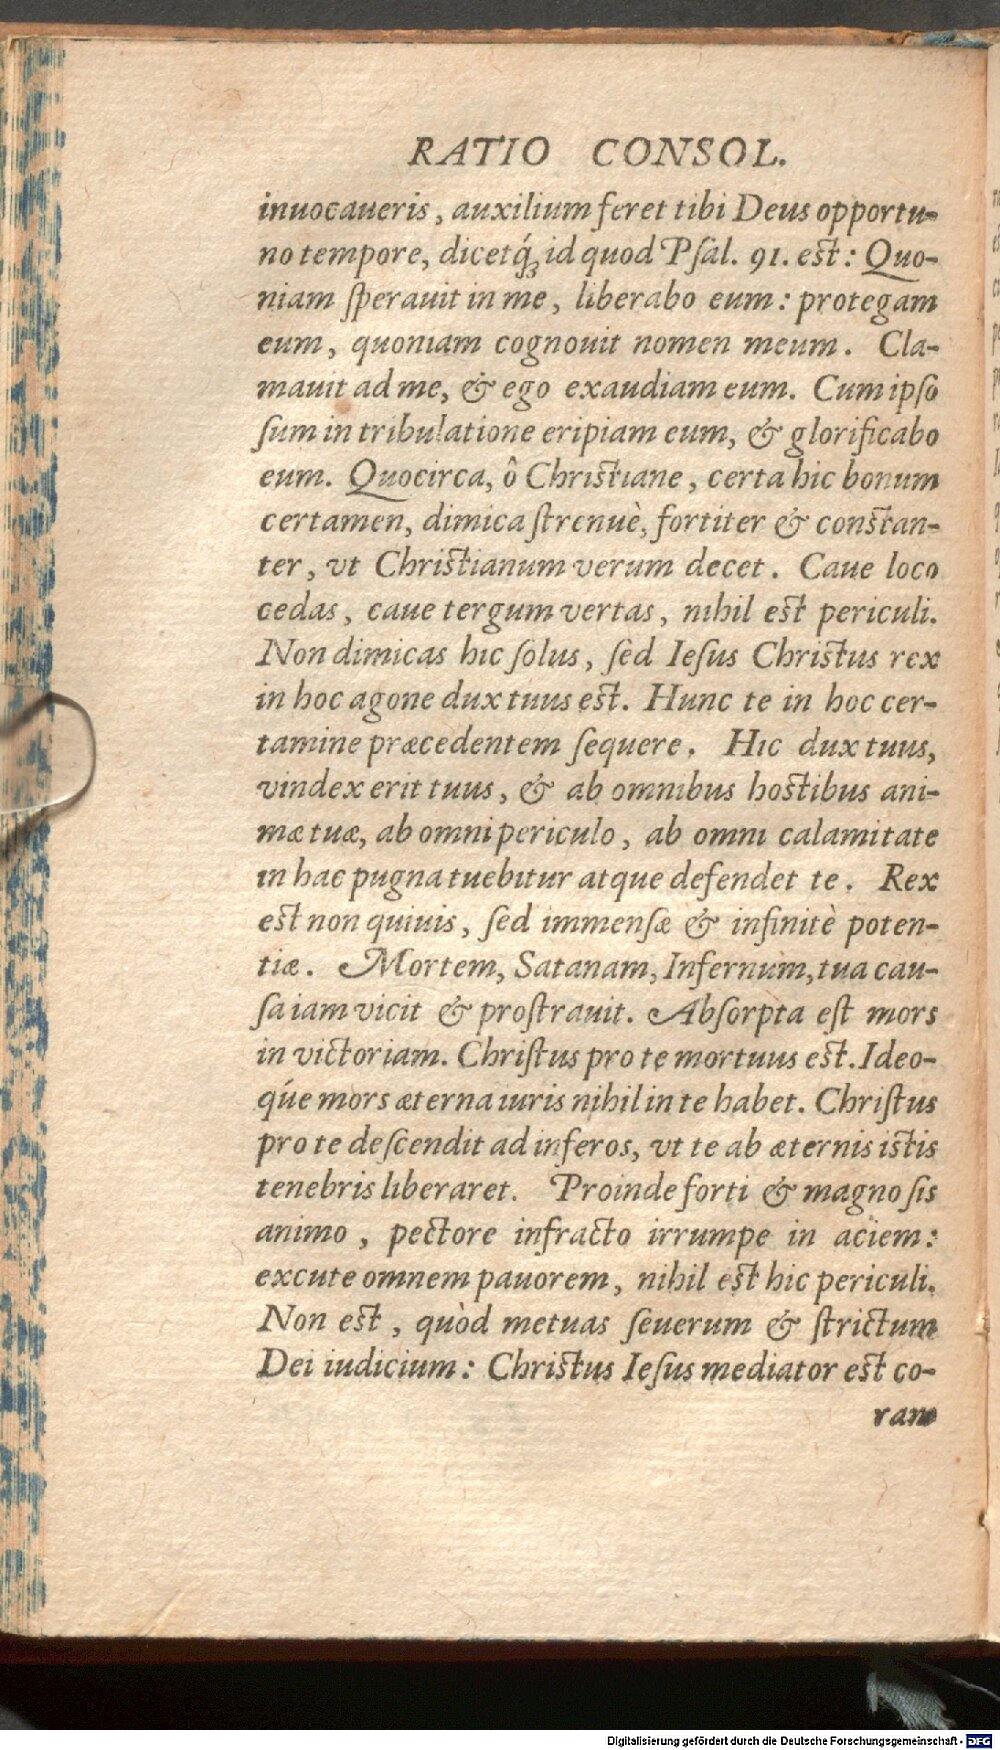 RATIO CONSOL.
inuocaueris, auxilium feret tibi Deus opportu-
no tempore, dicetq́; id quod Psal. 91. est: Quo-
niam sperauit in me, liberabo eum: protegam
eum, quoniam cognouit nomen meum. Cla-
mauit ad me, & ego exaudiam eum. Cum ipso
sum in tribulatione eripiam eum, & glorificabo
eum. Quocirca, ô Christiane, certa hic bonum
certamen, dimica strenuè, fortiter & constan-
ter, vt Christianum verum decet. Caue loco
cedas, caue tergum vertas, nihil est periculi.
Non dimicas hic solus, sed Iesus Christus rex
in hoc agone dux tuus est. Hunc te in hoc cer-
tamine præcedentem sequere. Hic dux tuus,
vindex erit tuus, & ab omnibus hostibus ani-
mæ tuæ, ab omni periculo, ab omni calamitate
in hac pugna tuebitur atque defendet te. Rex
est non quiuis, sed immensæ & infinitè poten-
tiæ. Mortem, Satanam, Infernum, tua cau-
sa iam vicit & prostrauit. Absorpta est mors
in victoriam. Christus pro te mortuus est. Ideo-
q́ue mors æterna iuris nihil in te habet. Christus
pro te descendit ad inferos, vt te ab æternis istis
tenebris liberaret. Proinde forti & magno sis
animo, pectore infracto irrumpe in aciem:
excute omnem pauorem, nihil est hic periculi.
Non est, quòd metuas seuerum & strictum
Dei iudicium: Christus Iesus mediator est co-
ram
Digitalisierung gefördert durch die Deutsche Forschungsgemeinschaft - DFG